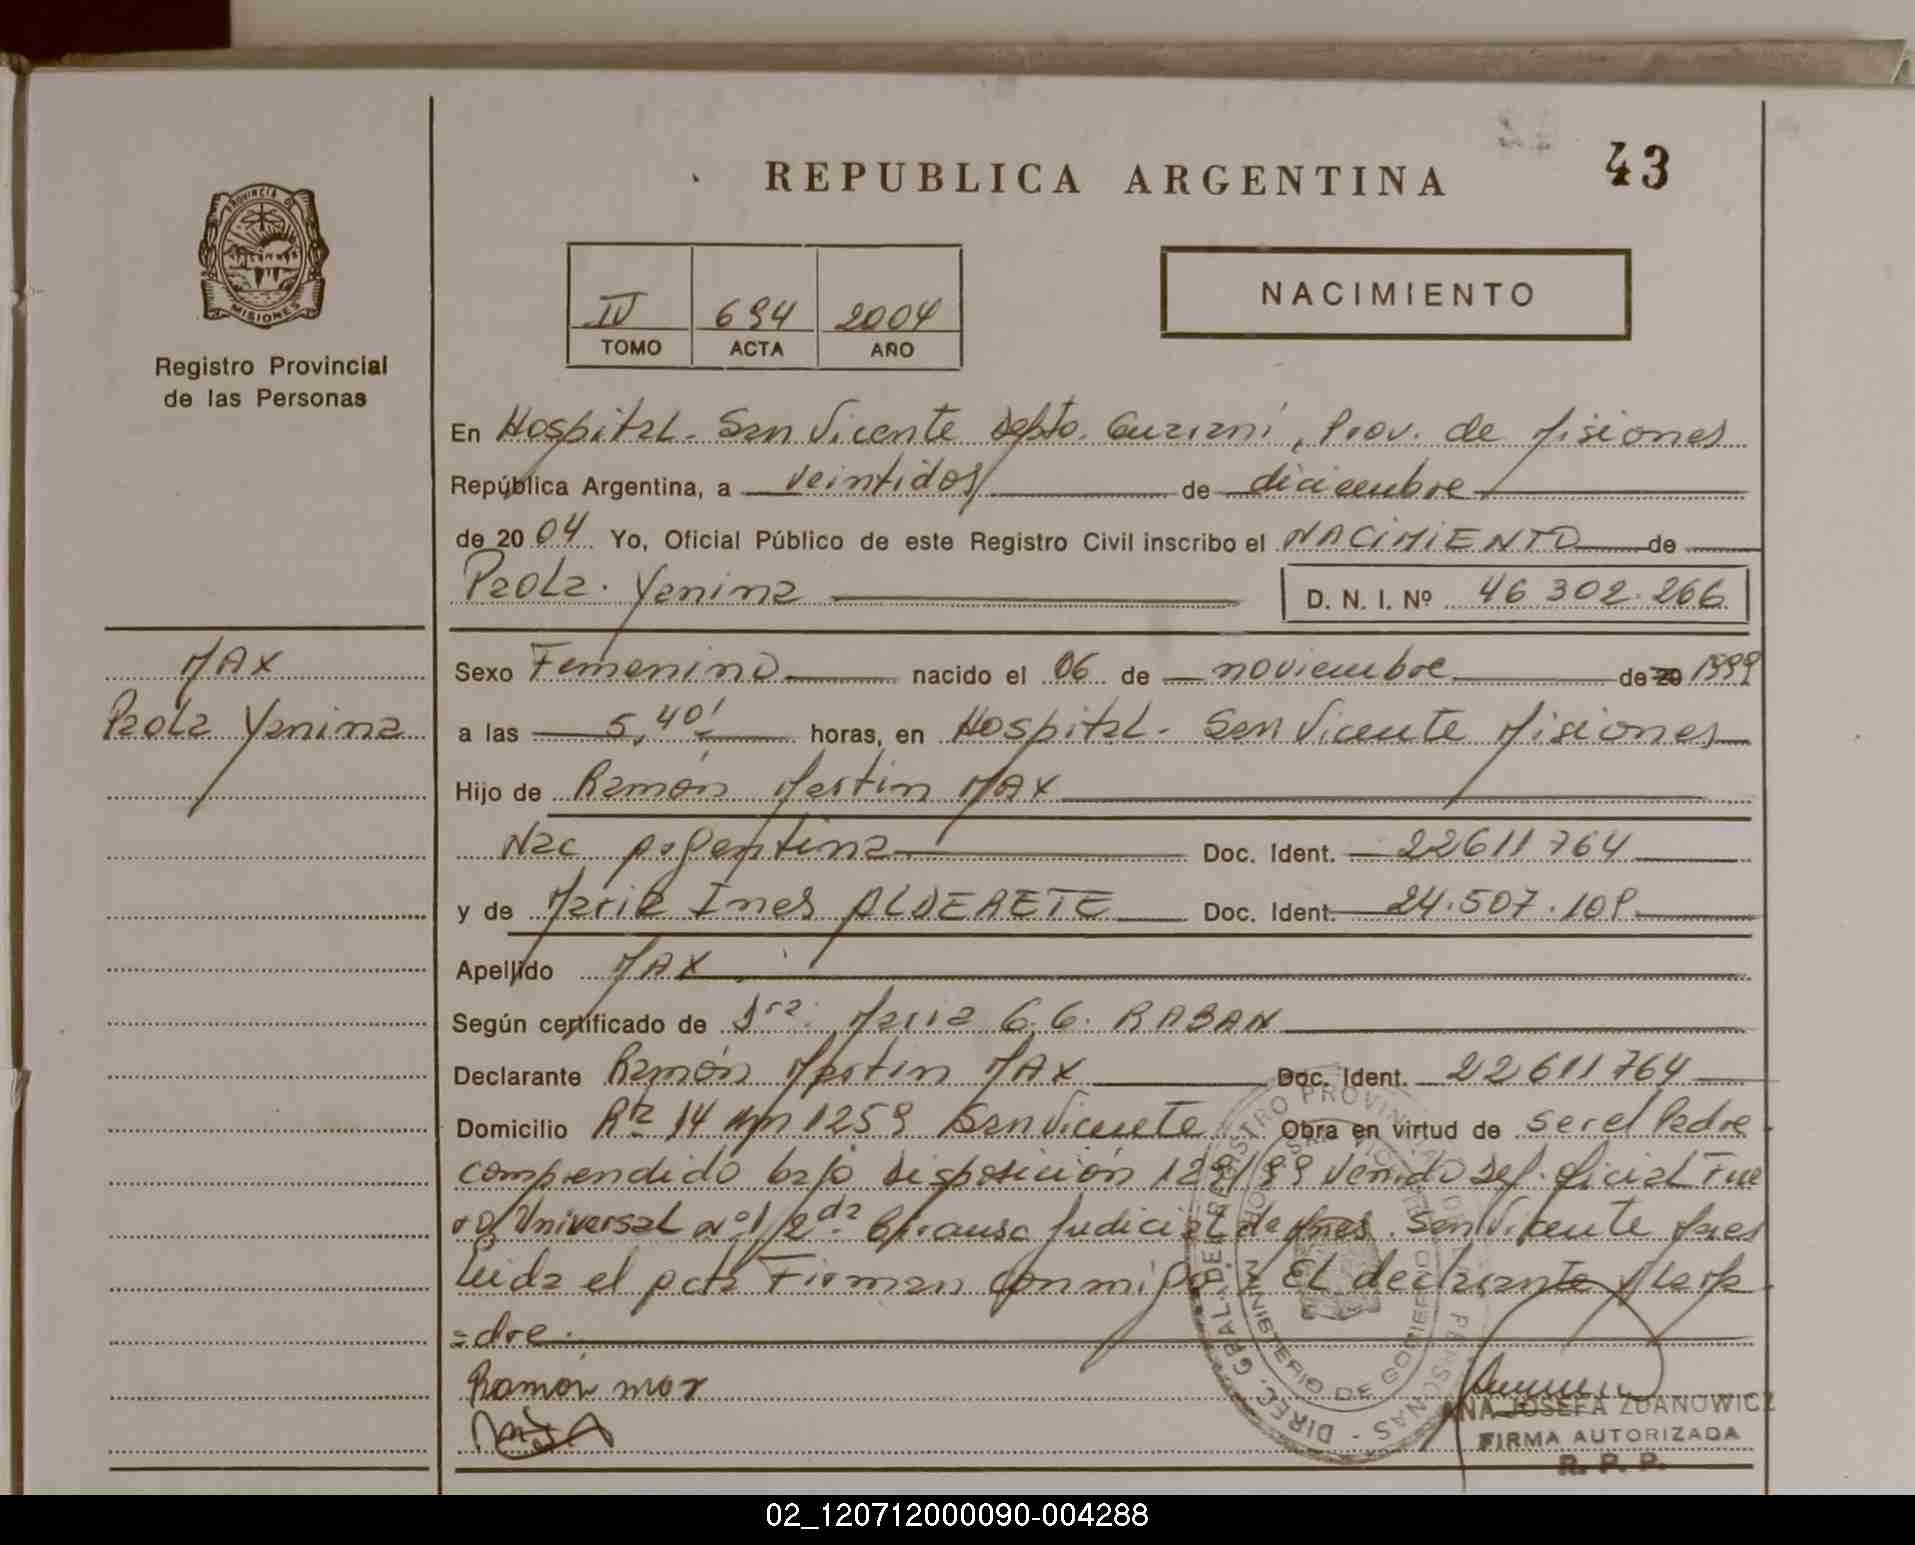 REPUBLICA ARGENTINA
43
PROVINCIA DE
MISIONES
Registro Provincial
de las Personas
IV 694 2004
TOMO ACTA AÑO
NACIMIENTO
En Hospital. San Vicente Depto. Guaraní, Prov. de Misiones
República Argentina, a veintidos de diciembre
de 2004 Yo, Oficial Público de este Registro Civil inscribo el NACIMIENTO de
Paola. Yanina D. N. I. Nº 46 302.266
MAX
Paola Yanina
Sexo Femenino nacido el 06 de noviembre de 20 1999
a las 5,40' horas, en Hospital. San Vicente Misiones
Hijo de Ramón Martin MAX
Nac Argentina Doc. Ident. 22611764
y de Maria Ines ALDERETE Doc. Ident. 24.507.108
Apellido MAX
Según certificado de Dra. Maria G.G. RABAN
Declarante Ramón Martin MAX Doc. Ident. 22611764
Domicilio Rta 14 km 1259 San Vicente Obra en virtud de ser el Padre
comprendido bajo Disposición 1291/99 Def. oficial Fue
ro Universal nº1 2da judicial de Mnes. San Vicente Mnes
Leida el acta Firman conmigo El declarante y la ma
=dre.
Ramon max
ANA JOSEFA ZDANOWICZ
FIRMA AUTORIZADA
R. P. P.
DIREC. GRAL. DE REGISTRO PROVINCIAL DE LAS PERSONAS
MINISTERIO DE GOBIERNO
02_120712000090-004288